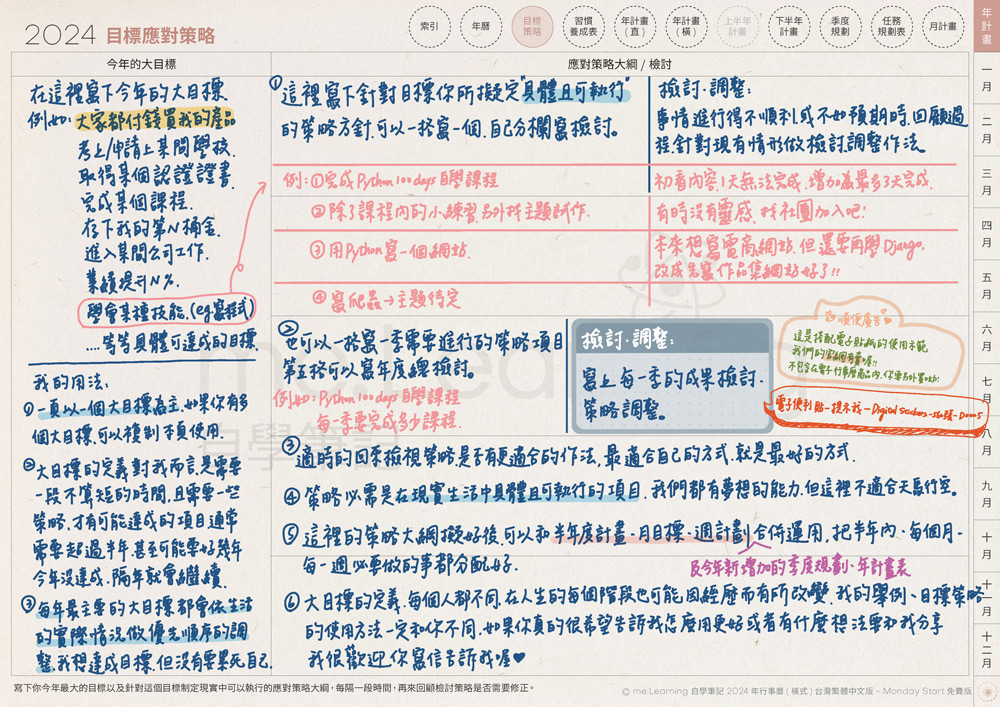 2024 目標應對策略
索引
年曆
目標策略
習慣養成表
年計畫(直)
年計畫(橫)
上半年計畫
下半年計畫
季度規劃
任務規劃表
月計畫
年計畫
今年的大目標
應對策略大綱 / 檢討
在這裡寫下今年的大目標
例如:大家都付錢買我的產品
考上/申請上某間學校.
取得某個認證證書.
完成某個課程.
存下我的第N桶金.
進入某間公司工作.
業績提升N%.
學會某種技能.(eg.寫程式)
....等等具體可達成的目標.
我的用法:
①一頁以一個大目標為主,如果你有多
個大目標,可以複制本頁使用.
②大目標的定義對我而言,是需要
一段不算短的時間,且需要一些
策略,才有可能達成的項目通常
需要超過半年,甚至可能要好幾年
今年沒達成,隔年就會繼續.
③每年最主要的大目標,都會依生活
的實際情況做優先順序的調
整,我想達成目標,但沒有要累死自己.
①這裡寫下針對目標你所擬定"具體且可執行"
的策略方針,可以一格寫一個,自己分欄寫檢討。
檢討.調整:
事情進行得不順利或不如預期時,回顧過
程,針對現有情形做檢討,調整作法.
例:①完成Python 100 days自學課程
初看內容,1天無法完成,增加為最多3天完成.
②除了課程內的小練習,另外找主題試作.
有時沒有靈感,找社團加入吧!
③用Python寫一個網站.
本來想寫電商網站,但還要再學Django,
改成先寫作品集網站好了!!
④寫爬蟲→主題待定
②也可以一格寫一季需要進行的策略項目
第五格可以寫年度總檢討。
例如:Python 100 days自學課程
每一季要完成多少課程.
檢討.調整:
寫上每一季的成果檢討.
策略調整。
順便廣告
這是搭配電子貼紙的使用示範,
我們的官網有賣喔!!
不包含在電子行事曆商品內,你要另外買哈哈!
電子便利貼-提示我-Digital Stickers-S60號-D0005
③適時的回來檢視策略是否有更適合的作法,最適合自己的方式,就是最好的方式.
④策略必需是在現實生活中具體且可執行的項目,我們都有夢想的能力,但這裡不適合天馬行空。
⑤這裡的策略大綱擬好後,可以和半年度計畫.月目標.週計劃合併運用,把半年內.每個月.
每一週必要做的事都分配好.
及今年新增加的季度規劃、年計畫表
⑥大目標的定義,每個人都不同,在人生的每個階段也可能因經歷而有所改變,我的舉例、目標策略
的使用方法一定和你不同,如果你真的很希望告訴我怎麼用更好或者有什麼想法要和我分享
我很歡迎你寫信告訴我喔♥
一月
二月
三月
四月
五月
六月
七月
八月
九月
十月
十一月
十二月
me.Learning
自學筆記
寫下你今年最大的目標以及針對這個目標制定現實中可以執行的應對策略大綱,每隔一段時間,再來回顧檢討策略是否需要修正。
© me.Learning 自學筆記 2024 年行事曆 ( 橫式 ) 台灣繁體中文版 – Monday Start 免費版